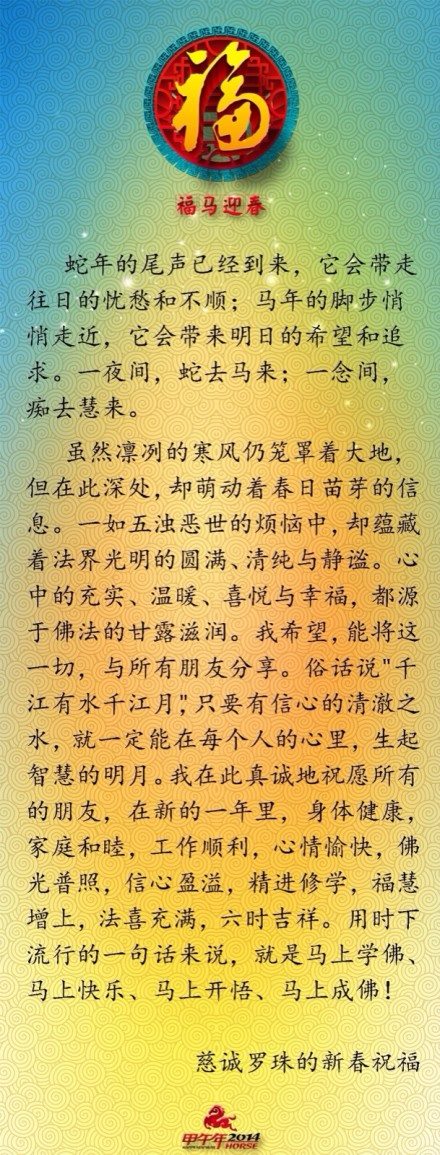 福
福马迎春
蛇年的尾声已经到来，它会带走
往日的忧愁和不顺；马年的脚步悄
悄走近，它会带来明日的希望和追
求。一夜间，蛇去马来；一念间，
痴去慧来。
虽然凛冽的寒风仍笼罩着大地，
但在此深处，却萌动着春日苗芽的信
息。一如五浊恶世的烦恼中，却蕴藏
着法界光明的圆满、清纯与静谧。心
中的充实、温暖、喜悦与幸福，都源
于佛法的甘露滋润。我希望，能将这
一切，与所有朋友分享。俗话说"千
江有水千江月"，只要有信心的清澈之
水，就一定能在每个人的心里，生起
智慧的明月。我在此真诚地祝愿所有
的朋友，在新的一年里，身体健康，
家庭和睦，工作顺利，心情愉快，佛
光普照，信心盈溢，精进修学，福慧
增上，法喜充满，六时吉祥。用时下
流行的一句话来说，就是马上学佛、
马上快乐、马上开悟、马上成佛！
慈诚罗珠的新春祝福
甲午年2014
HORSE